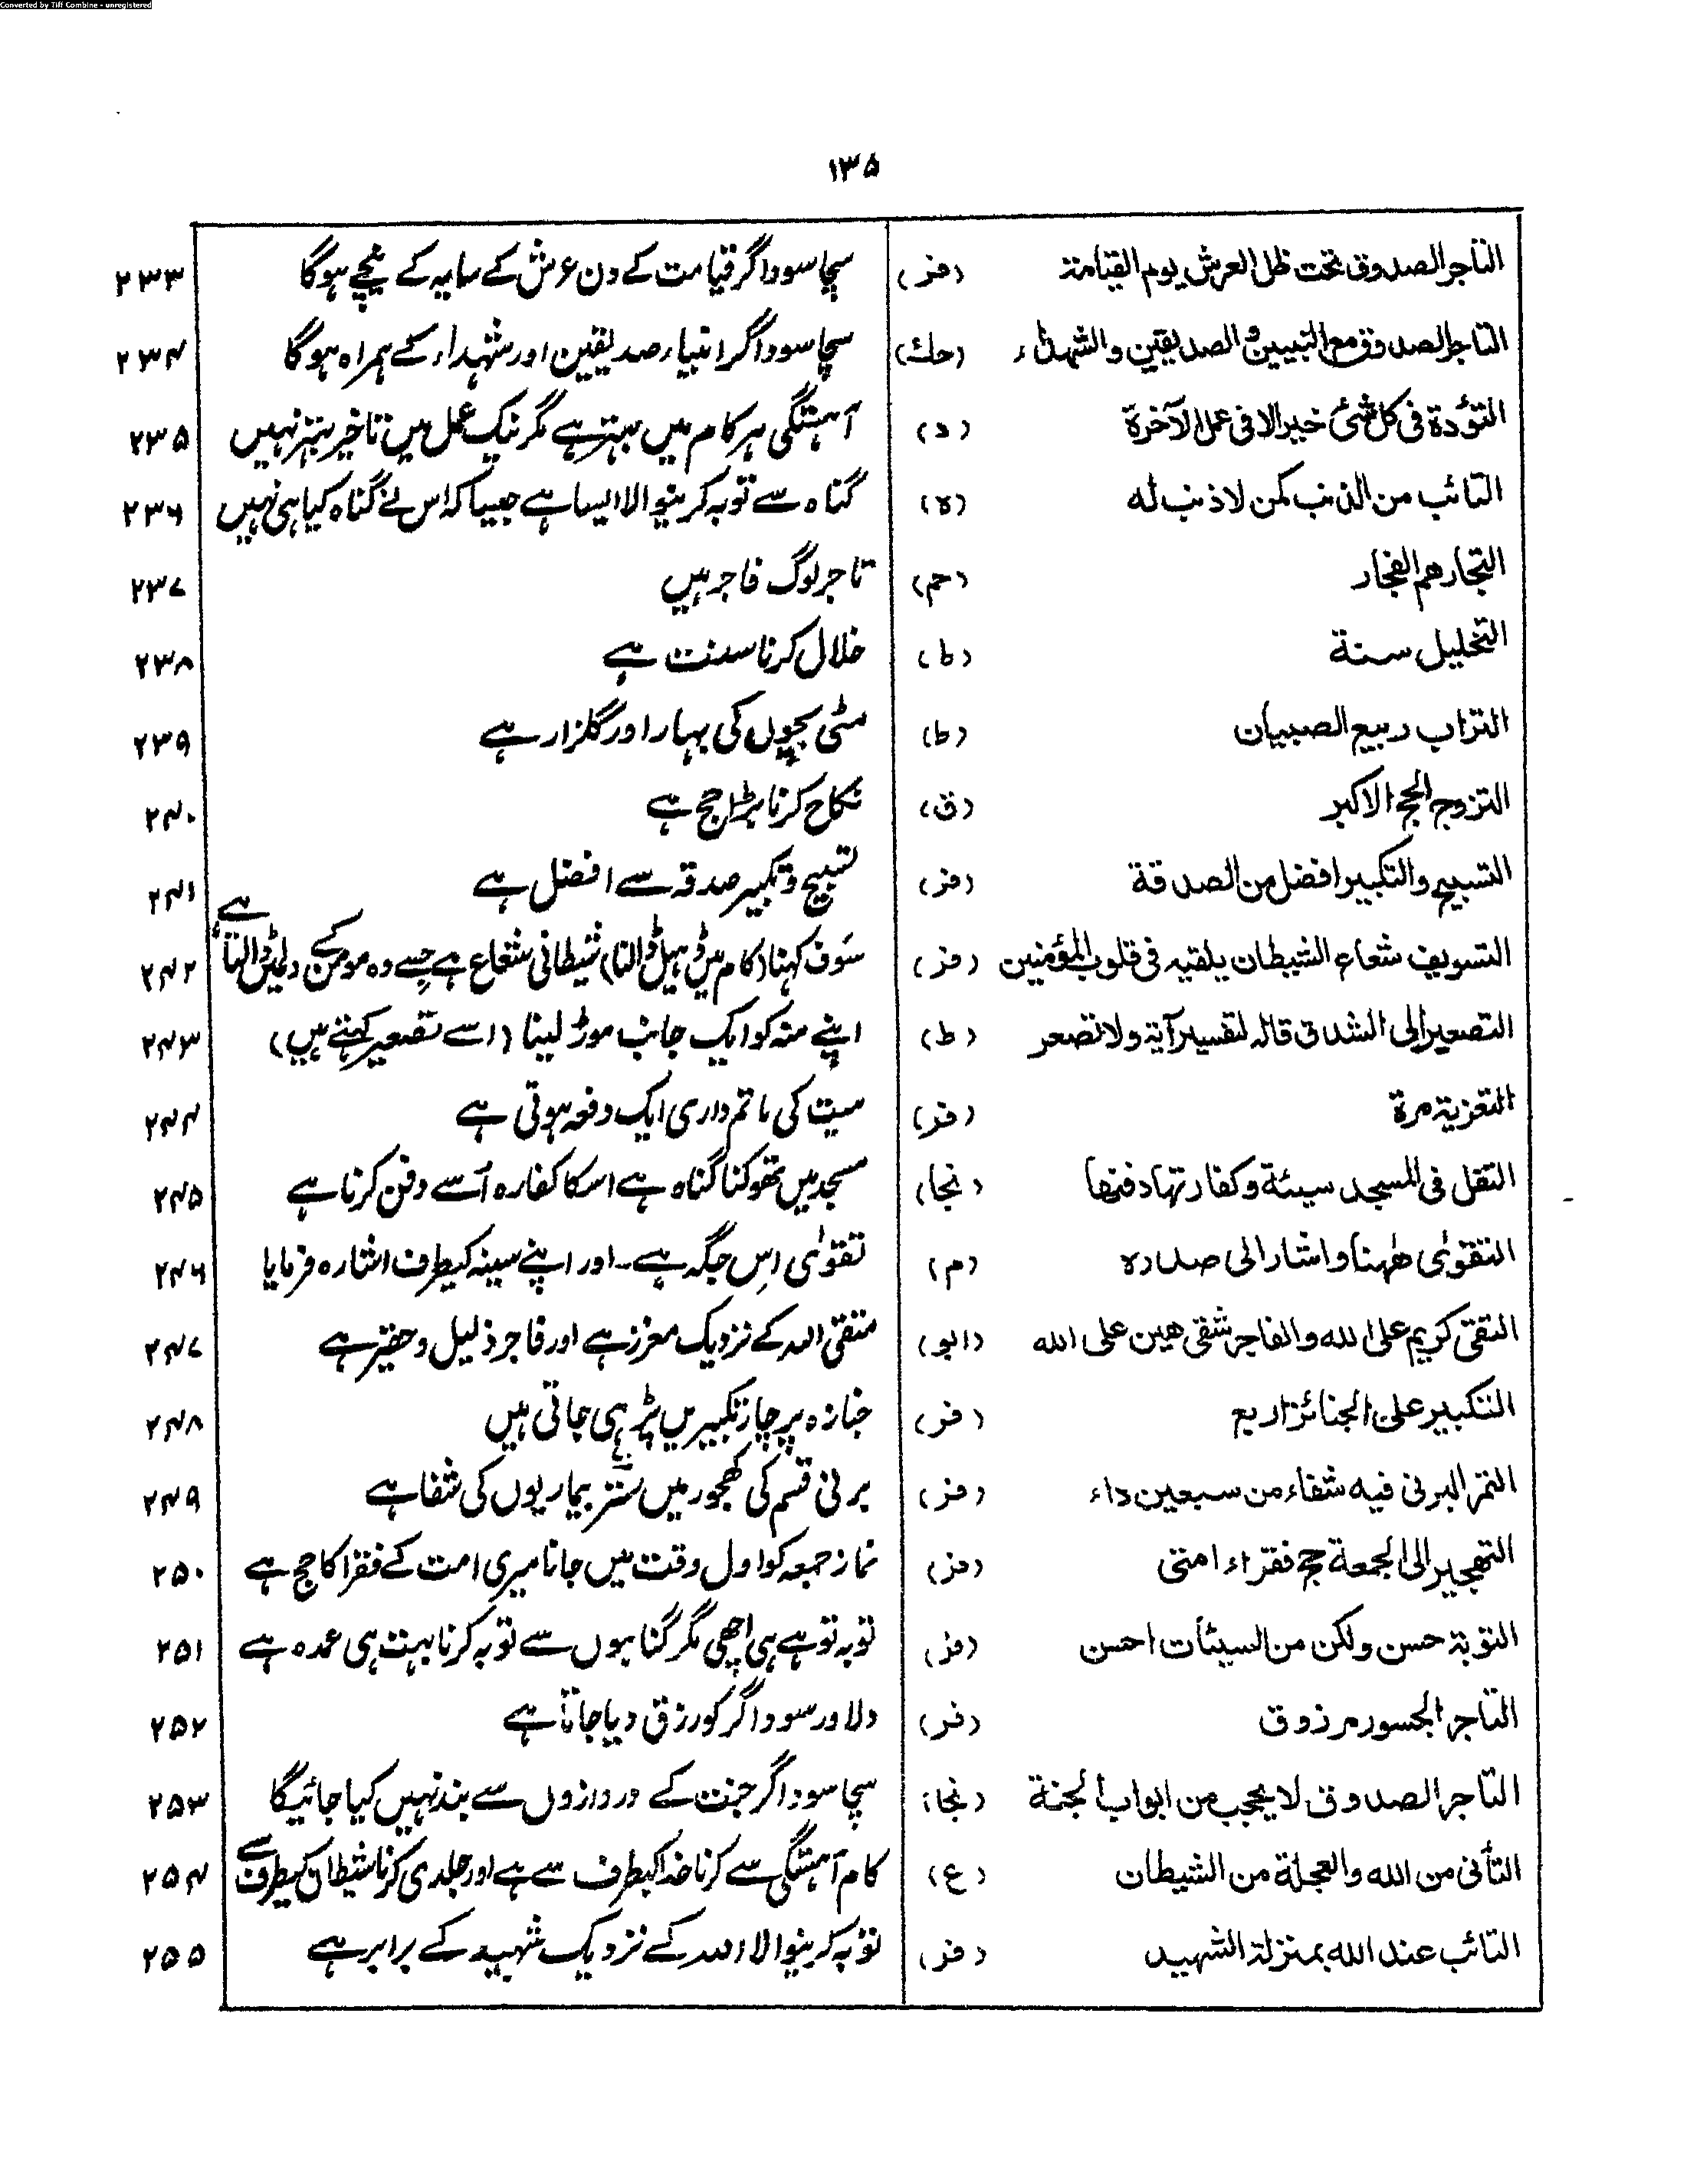 Converted by Tiff Combine - unregistered
۱۳۵
التاجر الصدوق تحت ظل العرش يوم القيامة (فر) سچا سوداگر قیامت کے دن عرش کے سایہ کے نیچے ہوگا ۲۳۳
التاجر الصدوق مع النبيين والصديقين والشهداء (حك) سچا سوداگر انبیاء صدیقین اور شہداء کے ہمراہ ہوگا ۲۳۴
التؤدة فى كل شئ خير الا فى عمل الآخرة (د) آہستگی ہر کام میں بہتر ہے مگر نیک عمل میں تاخیر بہتر نہیں ۲۳۵
التائب من الذنب كمن لا ذنب له (ه) گناہ سے توبہ کرنیوالا ایسا ہے جیسا کہ اس نے گناہ کیا ہی نہیں ۲۳۶
التجار هم الفجار (حم) تاجر لوگ فاجر ہیں ۲۳۷
التخليل سنة (ط) خلال کرنا سنت ہے ۲۳۸
التراب ربيع الصبيان (ط) مٹی بچوں کی بہار اور گلزار ہے ۲۳۹
التزوج الحج الاكبر (ق) نکاح کرنا بڑا حج ہے ۲۴۰
التسبيح والتكبير افضل من الصدقة (فر) تسبیح و تکبیر صدقہ سے افضل ہے ۲۴۱
التسويف شعاع الشيطان يلقيه فى قلوب المؤمنين (فر) سَوف کہنا (کام میں ڈہیل ڈالنا) شیطانی شعاع ہے جسے وہ مومن کے دلمیں ڈالتا ہے ۲۴۲
التصعير الى الشدق قاله لتفسير آية ولا تصعر (ط) اپنے منہ کو ایک جانب موڑ لینا (اسے تصعیر کہتے ہیں) ۲۴۳
التعزية مرة (فر) میت کی ماتم داری ایک دفعہ ہوتی ہے ۲۴۴
التفل فى المسجد سيئة وكفارتها دفنها (نجا) مسجد میں تھوکنا گناہ ہے اسکا کفارہ اُسے دفن کرنا ہے ۲۴۵
التقوٰى ههنا واشار الى صدره (م) تقوٰی اِس جگہ ہے۔ اور اپنے سینہ کیطرف اشارہ فرمایا ۲۴۶
التقى كريم على الله والفاجر شقى هين على الله (ابو) متقی اللہ کے نزدیک معزز ہے اور فاجر ذلیل و حقیر ہے ۲۴۷
التكبير على الجنائز اربع (فر) جنازہ پر چار تکبیریں پڑہی جاتی ہیں ۲۴۸
التمر البرنى فيه شفاء من سبعين داء (فر) برنی قسم کی کھجور میں ستّر بیماریوں کی شفا ہے ۲۴۹
التهجير الى الجمعة حج فقراء امتى (فر) نماز جمعہ کو اول وقت میں جانا میری امت کے فقرا کا حج ہے ۲۵۰
التوبة حسن ولكن من السيئات احسن (فر) توبہ تو ہے ہی اچھی مگر گناہوں سے توبہ کرنا بہت ہی عمدہ ہے ۲۵۱
التاجر الجسور مرزوق (فر) دلاور سوداگر کو رزق دیا جاتا ہے ۲۵۲
التاجر الصدوق لا يحجب من ابواب الجنة (نجا) سچا سوداگر جنت کے دروازوں سے بند نہیں کیا جائیگا ۲۵۳
التأنى من الله والعجلة من الشيطان (ع) کام آہستگی سے کرنا خدا کیطرف سے ہے اور جلدی کرنا شیطان کیطرف سے ۲۵۴
التائب عند الله بمنزلة الشهيد (فر) توبہ کرنیوالا اللہ کے نزدیک شہید کے برابر ہے ۲۵۵